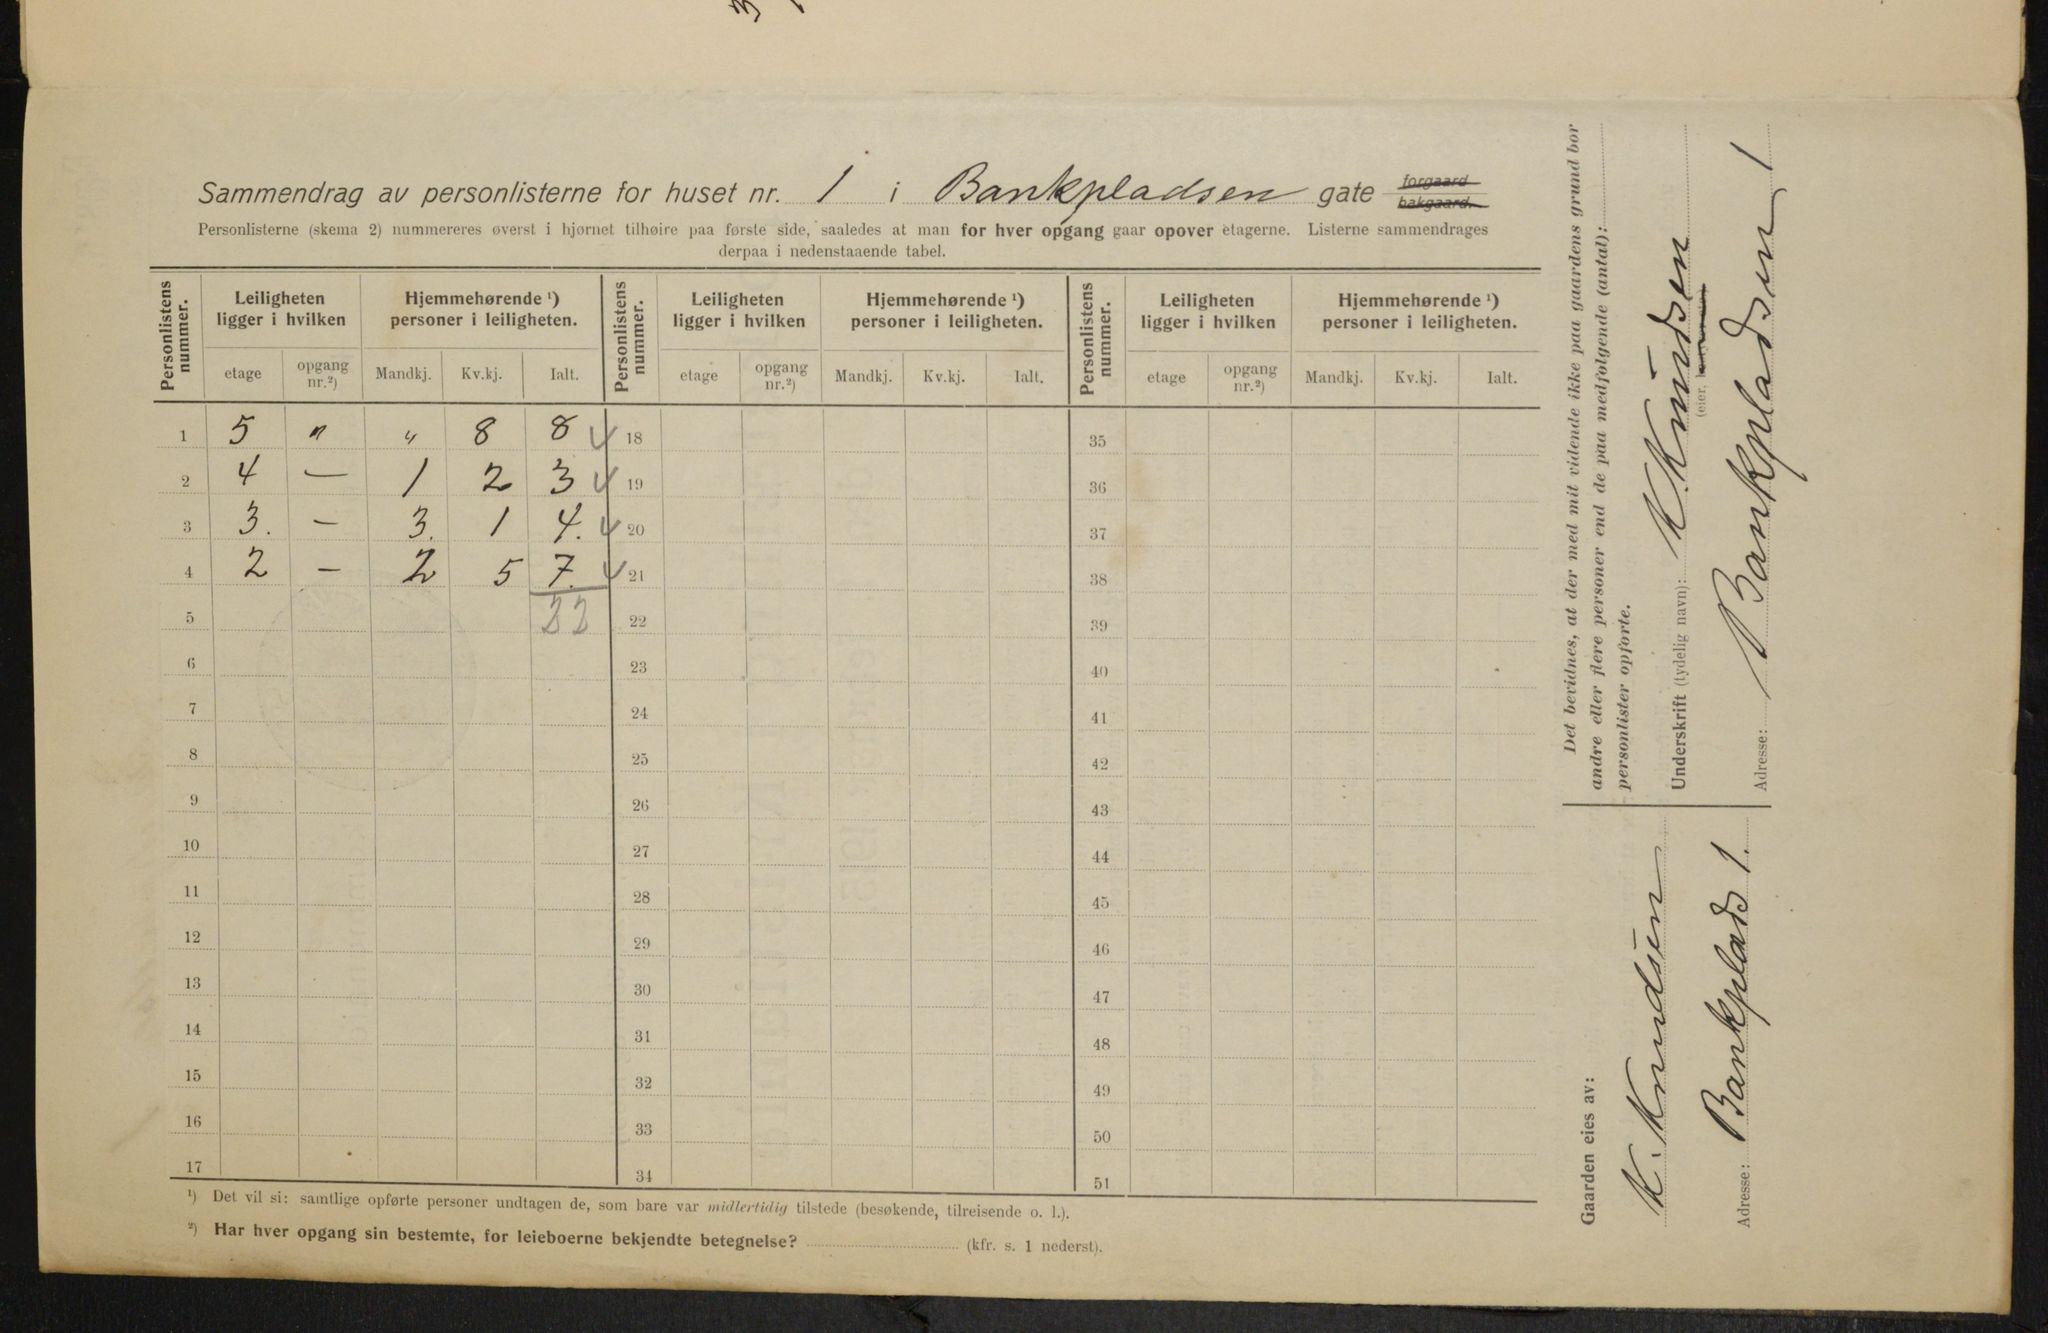 Sammendrag av personlisterne for huset nr. 1 i Bankpladsen gate forgaard bakgaard.
Personlisterne (skema 2) nummereres øverst i hjørnet tilhøire paa første side, saaledes at man for hver opgang gaar opover etagerne. Listerne sammendrages
derpaa i nedenstaaende tabel.
Personlistens nummer. Leiligheten ligger i hvilken Hjemmehørende ¹) personer i leiligheten. Personlistens nummer. Leiligheten ligger i hvilken Hjemmehørende ¹) personer i leiligheten. Personlistens nummer. Leiligheten ligger i hvilken Hjemmehørende ¹) personer i leiligheten.
etage opgang nr.²) Mandkj. Kv.kj. Ialt. etage opgang nr.²) Mandkj. Kv.kj. Ialt. etage opgang nr.²) Mandkj. Kv.kj. Ialt.
1 5 " " 8 8 18 35
2 4 — 1 2 3 19 36
3 3. — 3. 1 4. 20 37
4 2 — 2 5 7. 21 38
5 22 22 39
6 23 40
7 24 41
8 25 42
9 26 43
10 27 44
11 28 45
12 29 46
13 30 47
14 31 48
15 32 49
16 33 50
17 34 51
¹) Det vil si: samtlige opførte personer undtagen de, som bare var midlertidig tilstede (besøkende, tilreisende o. l.).
²) Har hver opgang sin bestemte, for leieboerne bekjendte betegnelse? (kfr. s. 1 nederst).
Det bevidnes, at der med mit vidende ikke paa gaardens grund bor
andre eller flere personer end de paa medfølgende (antal):
personlister opførte.
Underskrift (tydelig navn): K. Knudsen
(eier,
Adresse: Bankpladsen 1
Gaarden eies av:
K. Knudsen
Adresse: Bankplads 1.